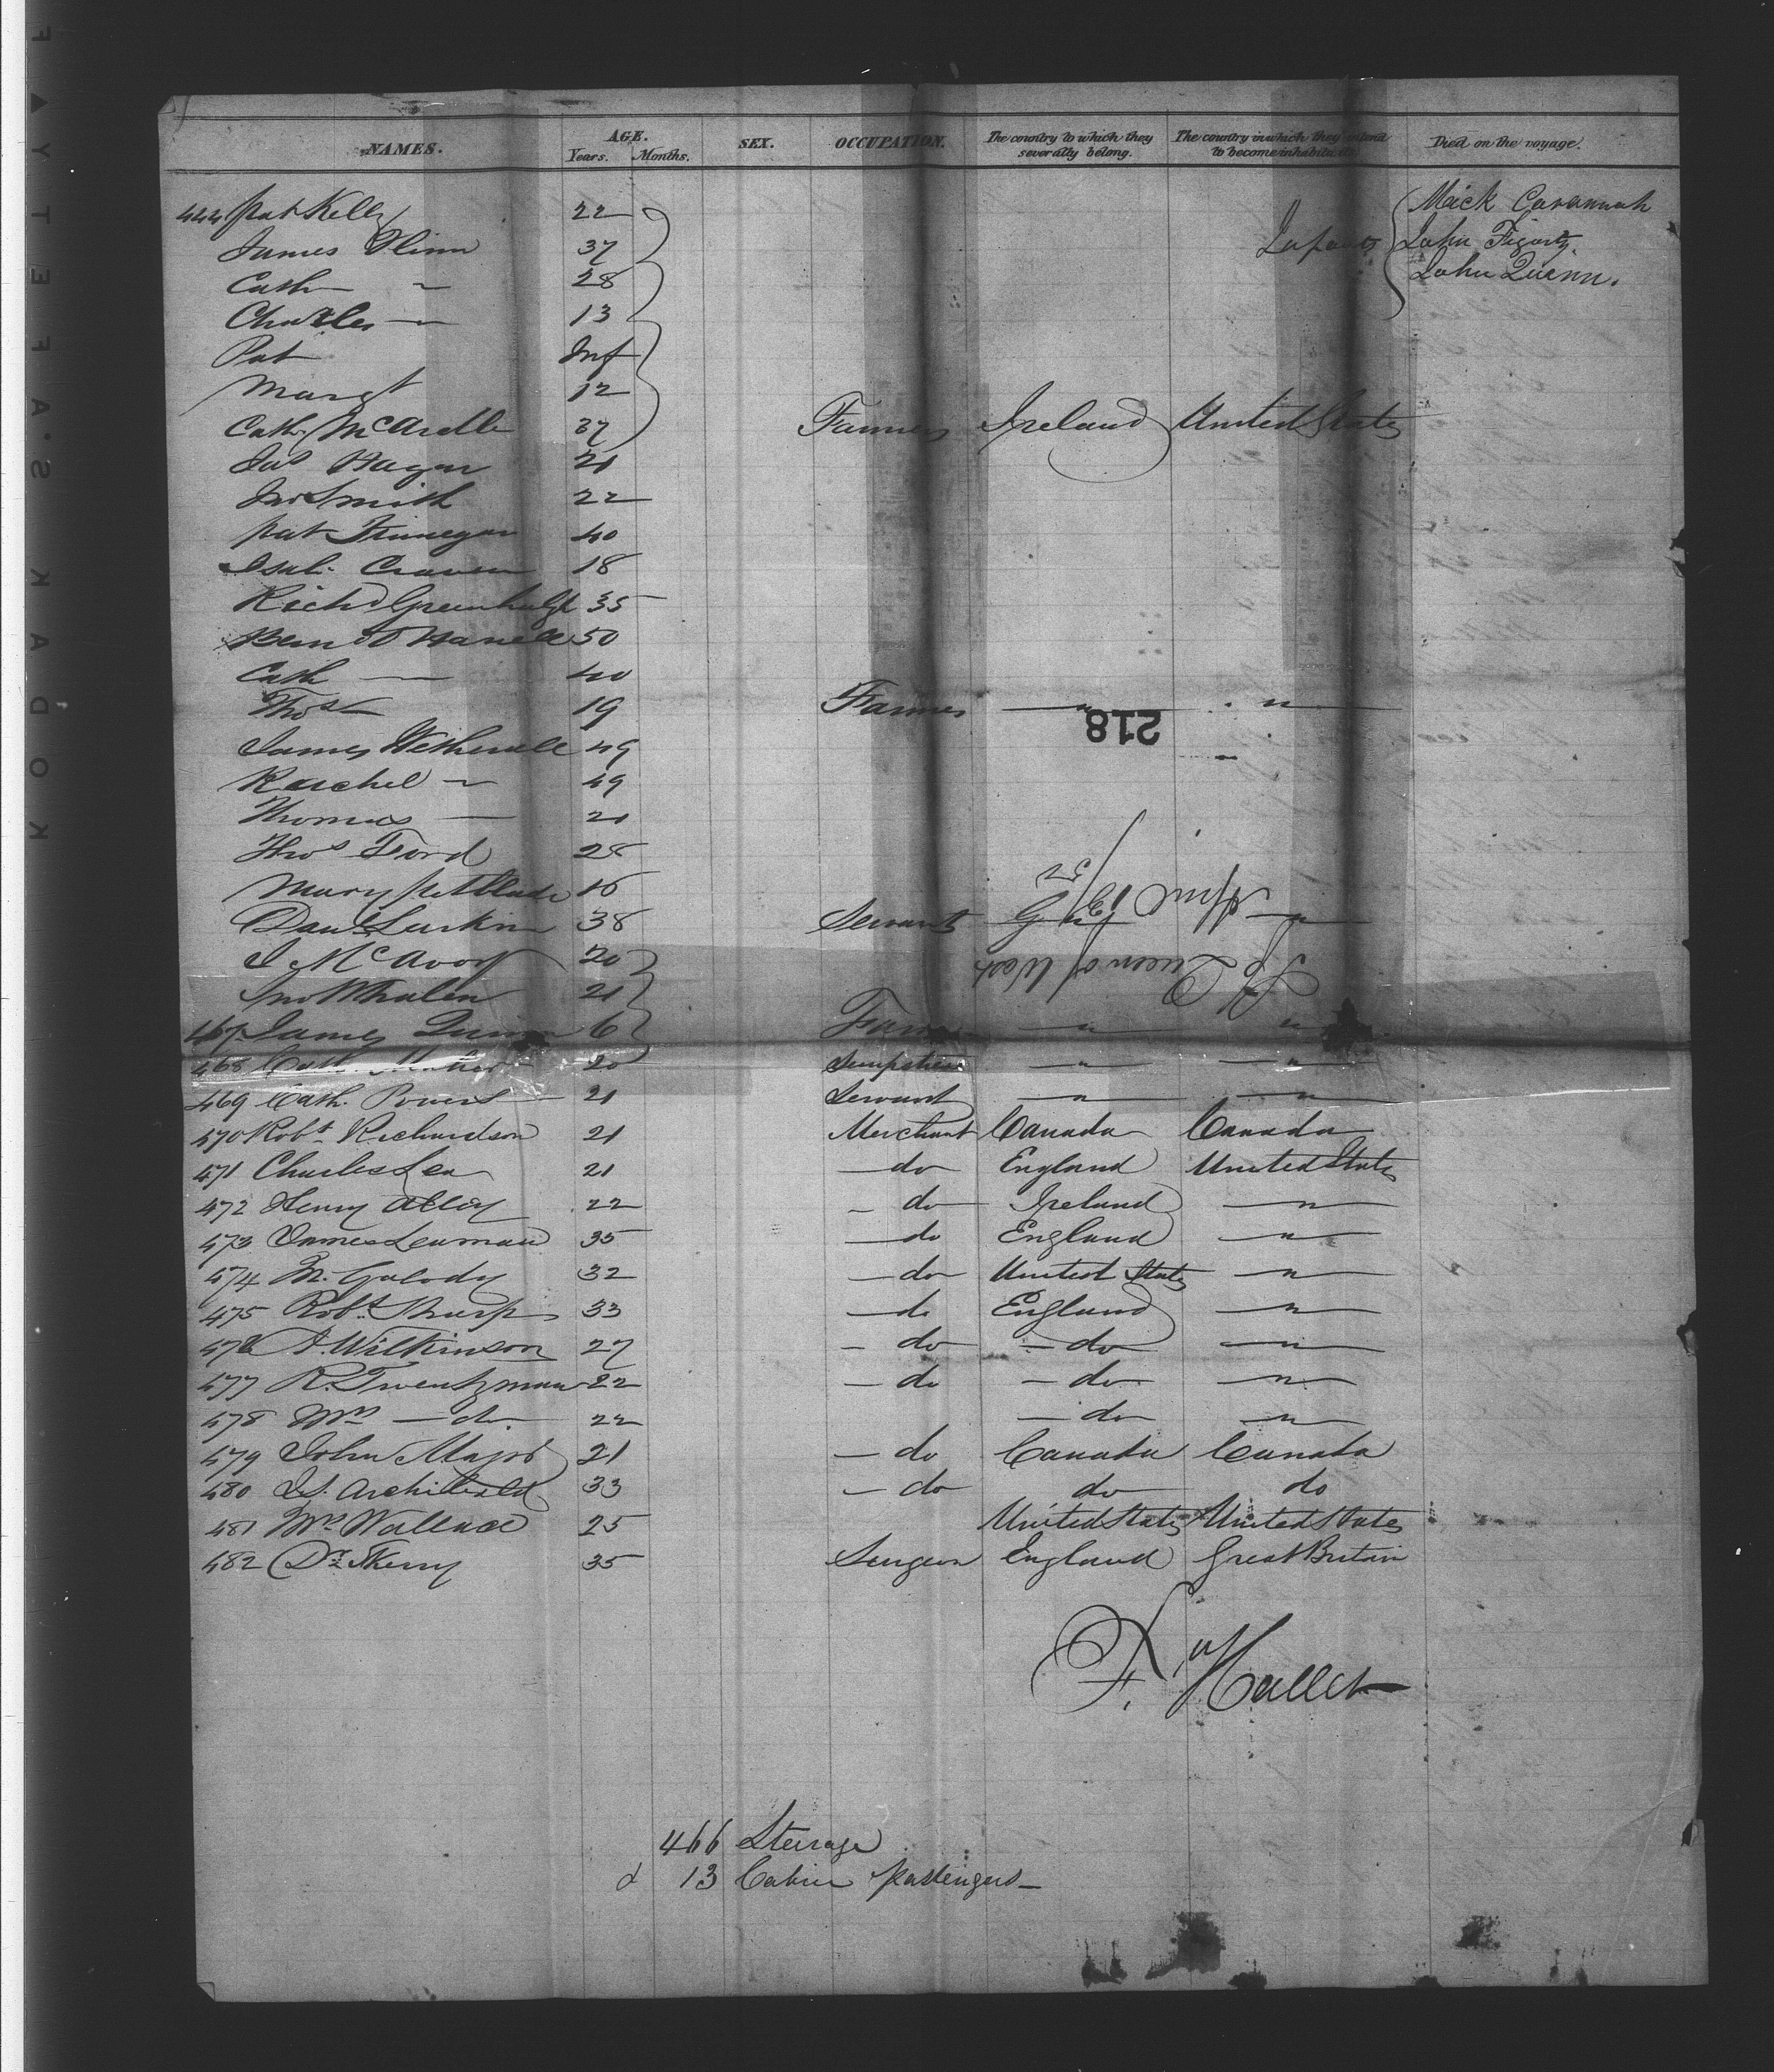 NAMES. AGE. Years. Months. SEX. OCCUPATION. The country to which they severally belong. The country in which they intend to become inhabitants. Died on the voyage.
444 Pat Kelly 22 Mick Cavannah
James Flinn 37 Infants John Figarty
Cath — 28 John Quinn.
Charles — 13
Pat Inf
Margt 12
Cath. McArdle 37 Farmers Ireland United States
Jas Hagan 21
Jno Smith 22
Pat Finnegan 40
Isab. Craven 18
Richd Greenhalgh 35
50
Cath — 40
Thos — 19 Farmer " "
James Wetherall 49
218
Rachel — 49
Thomas — 21
Thos Ford 28
Mary 16
Danl Larkin 38 Servants " "
J McAvoy 20
Jno Whalen 21
Sp Queen of West
April 13/52
467 James Quinn 6 " "
468 Cath. 20 Sempstress " "
469 Cath. Powers 21 Servant " "
470 Robt Richardson 21 Merchant Canada Canada
471 Charles Lea 21 — do England United States
472 Henry 22 — do Ireland — " —
473 James Leaman 35 — do England — " —
474 M. 32 — do United States — " —
475 Robt. Sharp 33 — do England — " —
476 A. Wilkinson 27 — do — do — " —
477 R. Twentyman 22 — do — do — " —
478 Mrs — do 22 — do — " —
479 John Major 21 — do Canada Canada
480 Archibald 33 — do do do
481 Mrs Wallace 25 United States United States
482 Dr. Skerry 35 Surgeon England Great Britain
F. Hallet
466 Steerage
& 13 Cabin passengers —
KODAK · S.A.F.E.T.Y ▲ F